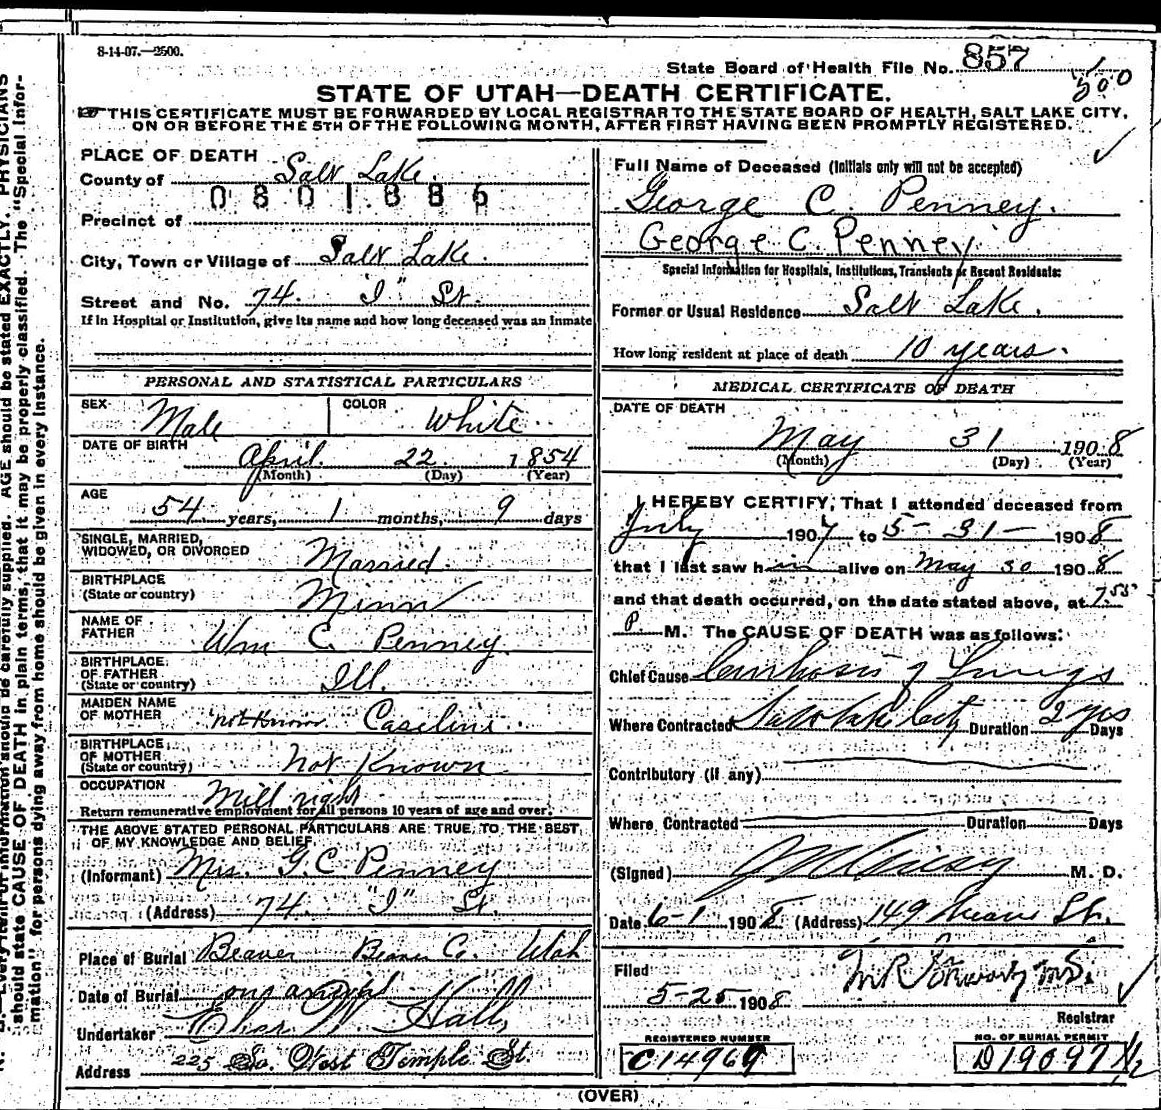 8-14-07.—2500.
State Board of Health File No. 857
500
STATE OF UTAH—DEATH CERTIFICATE.
THIS CERTIFICATE MUST BE FORWARDED BY LOCAL REGISTRAR TO THE STATE BOARD OF HEALTH, SALT LAKE CITY,
ON OR BEFORE THE 5TH OF THE FOLLOWING MONTH, AFTER FIRST HAVING BEEN PROMPTLY REGISTERED.
PLACE OF DEATH
County of Salt Lake.
0801886
Precinct of
City, Town or Village of Salt Lake.
Street and No. 74 "I" St.
If in Hospital or Institution, give its name and how long deceased was an inmate
PERSONAL AND STATISTICAL PARTICULARS
SEX Male COLOR White
DATE OF BIRTH April 22 1854
(Month) (Day) (Year)
AGE
54 years, 1 months, 9 days
SINGLE, MARRIED,
WIDOWED, OR DIVORCED Married
BIRTHPLACE
(State or country) Minn
NAME OF
FATHER Wm C. Penney
BIRTHPLACE
OF FATHER
(State or country) Ill.
MAIDEN NAME
OF MOTHER not known Caseline
BIRTHPLACE
OF MOTHER
(State or country) Not Known
OCCUPATION Mill right
Return remunerative employment for all persons 10 years of age and over.
THE ABOVE STATED PERSONAL PARTICULARS ARE TRUE TO THE BEST
OF MY KNOWLEDGE AND BELIEF
(Informant) Mrs. G. C Penney
(Address) 74 "I" St.
Place of Burial Beaver Beaver Co. Utah
Date of Burial on arrival
Undertaker Hall
Address 225 So. West Temple St.
Full Name of Deceased (Initials only will not be accepted)
George C. Penney.
George C. Penney
Special Information for Hospitals, Institutions, Transients or Recent Residents:
Former or Usual Residence Salt Lake.
How long resident at place of death 10 years.
MEDICAL CERTIFICATE OF DEATH
DATE OF DEATH
May 31 1908
(Month) (Day) (Year)
I HEREBY CERTIFY, That I attended deceased from
July 1907 to 5-31- 1908
that I last saw him alive on May 30 1908
and that death occurred, on the date stated above, at 7 55
P. M. The CAUSE OF DEATH was as follows:
Chief Cause Cirrhosis of Lungs
Where Contracted Salt Lake City Duration 2 yrs Days
Contributory (if any)
Where Contracted Duration Days
(Signed) M. D.
Date 6-1 1908 (Address) 149 St.
Filed
5-25 1908
Registrar
REGISTERED NUMBER
C14969
NO. OF BURIAL PERMIT
D19097 1/2
(OVER)
should state CAUSE OF DEATH in plain terms, that it may be properly classified. The "Special Infor-
mation" for persons dying away from home should be given in every instance.